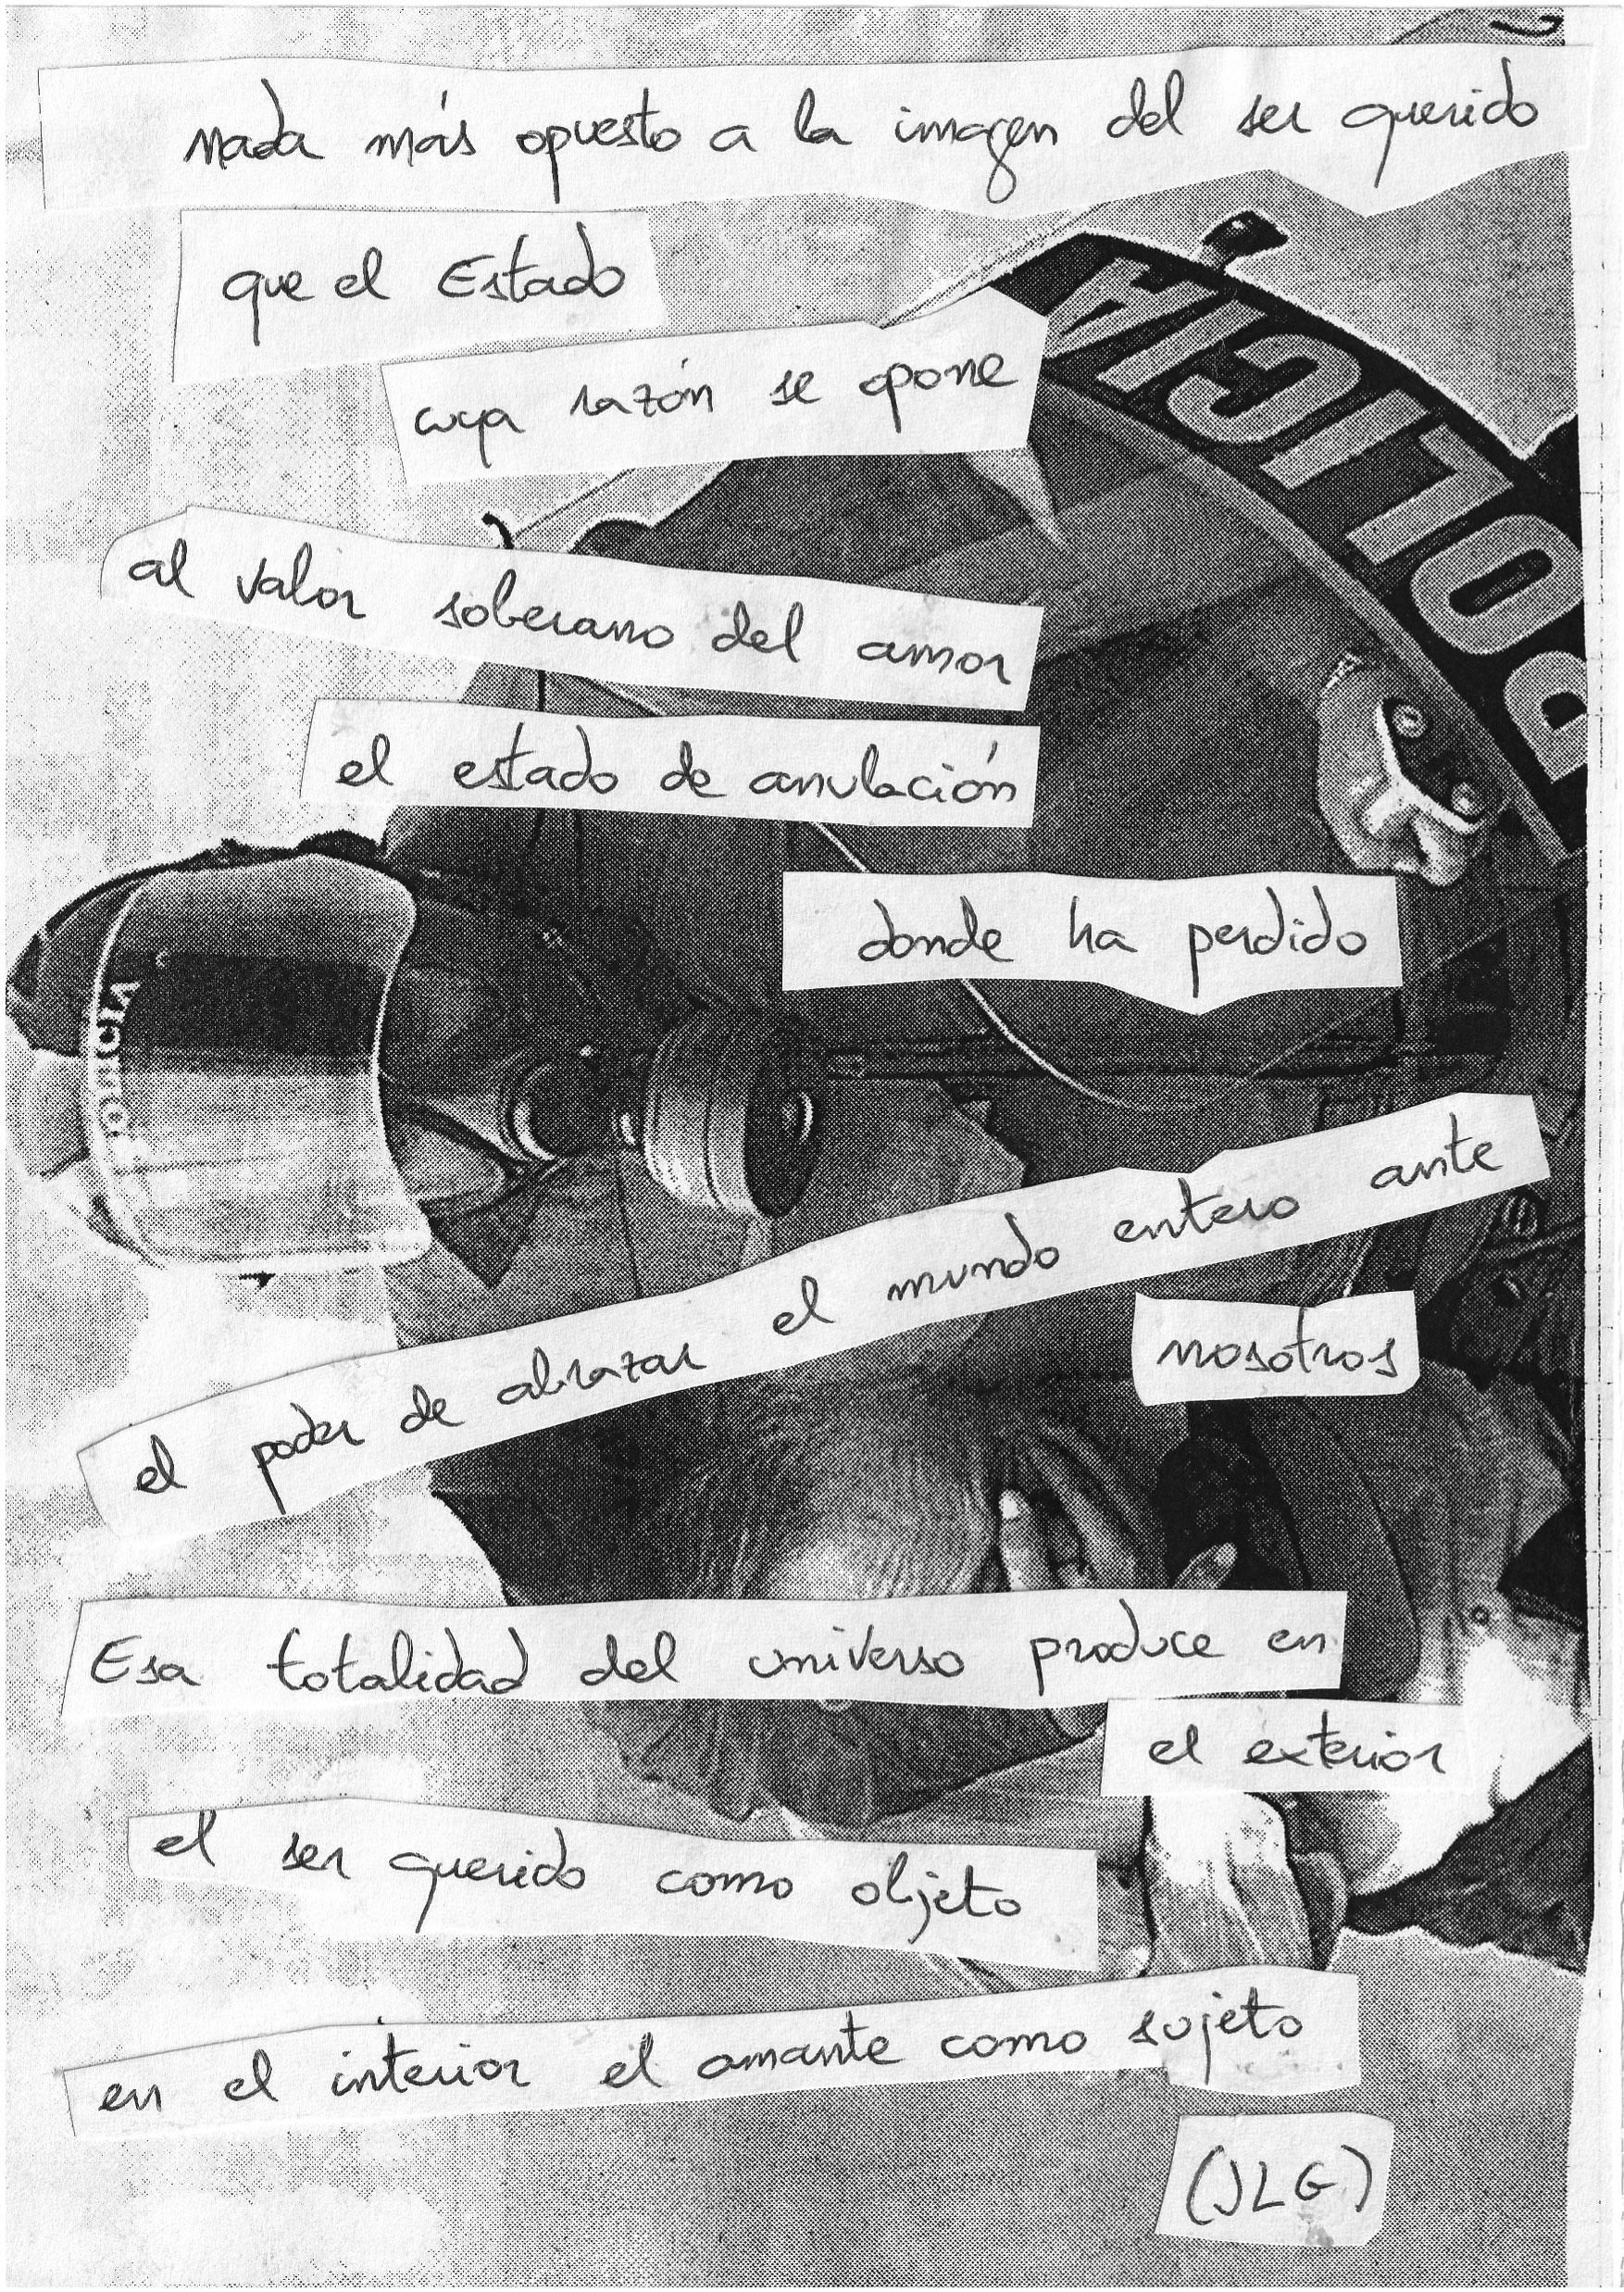 nada más opuesto a la imagen del ser querido
que el Estado
cuya razón se opone
al valor soberano del amor
el estado de anulación
donde ha perdido
el poder de abrazar el mundo entero ante
nosotros
Esa totalidad del universo produce en
el exterior
el ser querido como objeto
en el interior el amante como sujeto
(JLG)
POLICIA
POLICIA